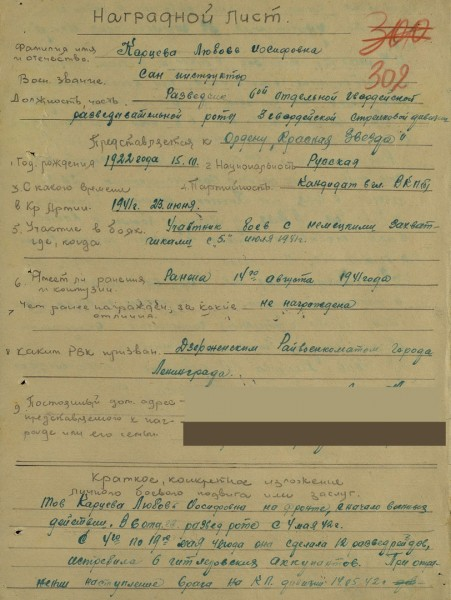 Наградной Лист.
300
Фамилия имя Карцева Любовь Иосифовна
и отечество.
302
Воен. Звание. Сан инструктор
Должность, часть. Разведчик 6ой отдельной гвардейской
разведывательной роты 3 гвардейской Стрелковой дивизии
Представляется к Ордену "Красная Звезда"
1. Год. рождения 1922 года 15. 2 Национальность Русская
3. С какого времени 4. Партийность Кандидат в чл. ВКПб
в Кр Армии. 1941г. 23. июня.
5. Участие в боях. Участник боев с немецкими захват-
где, когда чиками с 5 июля 1941г.
6. Имеет ли ранения Ранена 14го августа 1941 года
и контузии.
7. Чем ранее награжден, за какие не награждена
отличия.
8 каким РВК призван. Дзержинским Райвоенкоматом города
Ленинграда.
9. Постоянный дом. адрес -
представляемого к наг-
раде или его семьи
Краткое, конкретное изложение
личного боевого подвига или заслуг.
Тов Карцева Любовь Иосифовна на фронте, с начала военных
действий. В развед роте с 4 мая 42г.
С 4го по 19 мая 42 года она сделала 12 разведрейдов,
истребила 6 гитлеровских оккупантов. При отра-
жении наступление врага на К.П. дивизии 19.05.42г.